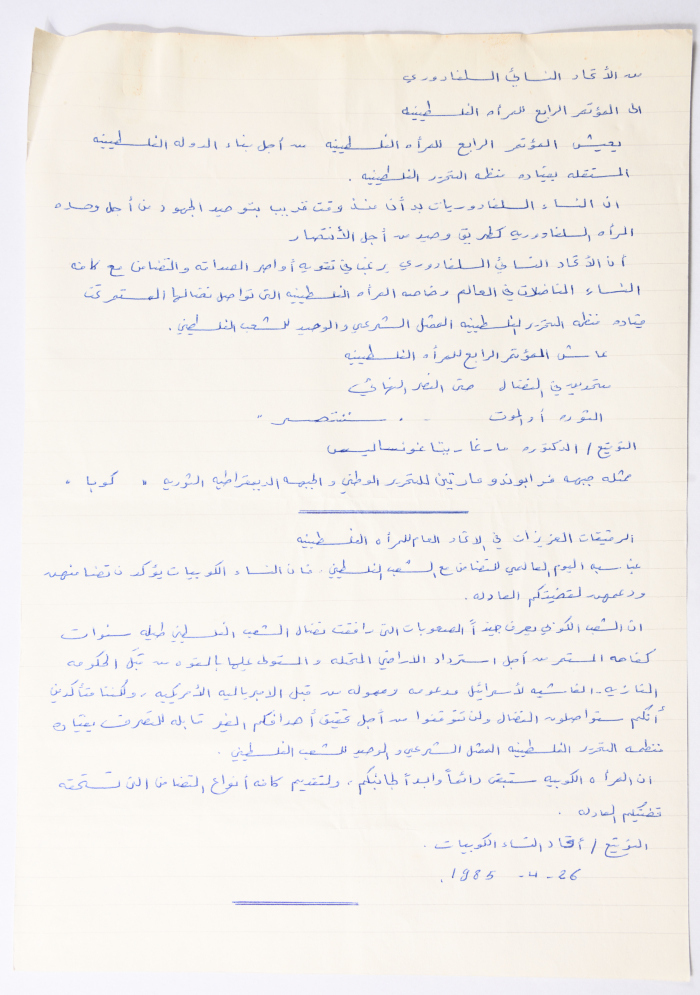 من الأتحاد النسائي السلفادوري
الى المؤتمر الرابع للمرأه الفلسطينيه
يعيش المؤتمر الرابع للمرأه الفلسطينيه من أجل بناء الدوله الفلسطينيه
المستقله بقياده منظمه التحرير الفلسطينيه .
ان النساء السلفادوريات بدأن منذ وقت قريب بتوحيد الجهود من أجل وحده
المرأه السلفادوريه كطريق وحيد من أجل الأنتصار
أن الأتحاد النسائي السلفادوري يرغب في تقويه أواصر الصداقه والتضامن مع كافه
النساء المناضلات في العالم وخاصه المرأه الفلسطينيه التي تواصل نضالها المستمر تحت
قياده منظمه التحرير الفلسطينيه الممثل الشرعي والوحيد للشعب الفلسطيني .
عاش المؤتمر الرابع للمرأه الفلسطينيه
متحدين في النضال حتى النصر النهائي
الثوره أو الموت . . سننتصر "
التوقيع / الدكتوره مارغاريتا غونساليس
ممثله جبهه فرابوندو مارتين للتحرير الوطني والجبهه الديمقراطيه الثوريه " كوبا "
الرفيقات العزيزات في الاتحاد العام للمرأه الفلسطينيه
بمناسبه اليوم العالمي للتضامن مع الشعب الفلسطيني ، فان النساء الكوبيات يؤكدن تضامنهن
ودعمهن لقضيتكم العادله .
ان الشعب الكوبي يعرف جيداً الصعوبات التي رافقت نضال الشعب الفلسطيني طيله سنوات
كفاحه المستمر من أجل استرداد الاراضي المحتله والمستولى عليها بالقوه من قبل الحكومه
النازيه - الفاشيه لأسرائيل مدعومه وممموله من قبل الامبرياليه الأمريكيه ، ولكننا متأكدين
أنكم ستواصلون النضال ولن تتوقفوا من أجل تحقيق أهدافكم الغير قابله للتصرف بقياده
منظمه التحرير الفلسطينيه الممثل الشرعي والوحيد للشعب الفلسطيني .
ان المرأه الكوبيه ستبقى دائماً وابداً لجانبكم ، ولتقديم كافه أنواع التضامن التي تستحقه
قضيتكم العادله .
التوقيع / أتحاد النساء الكوبيات .
26 - 4 - 1985 .